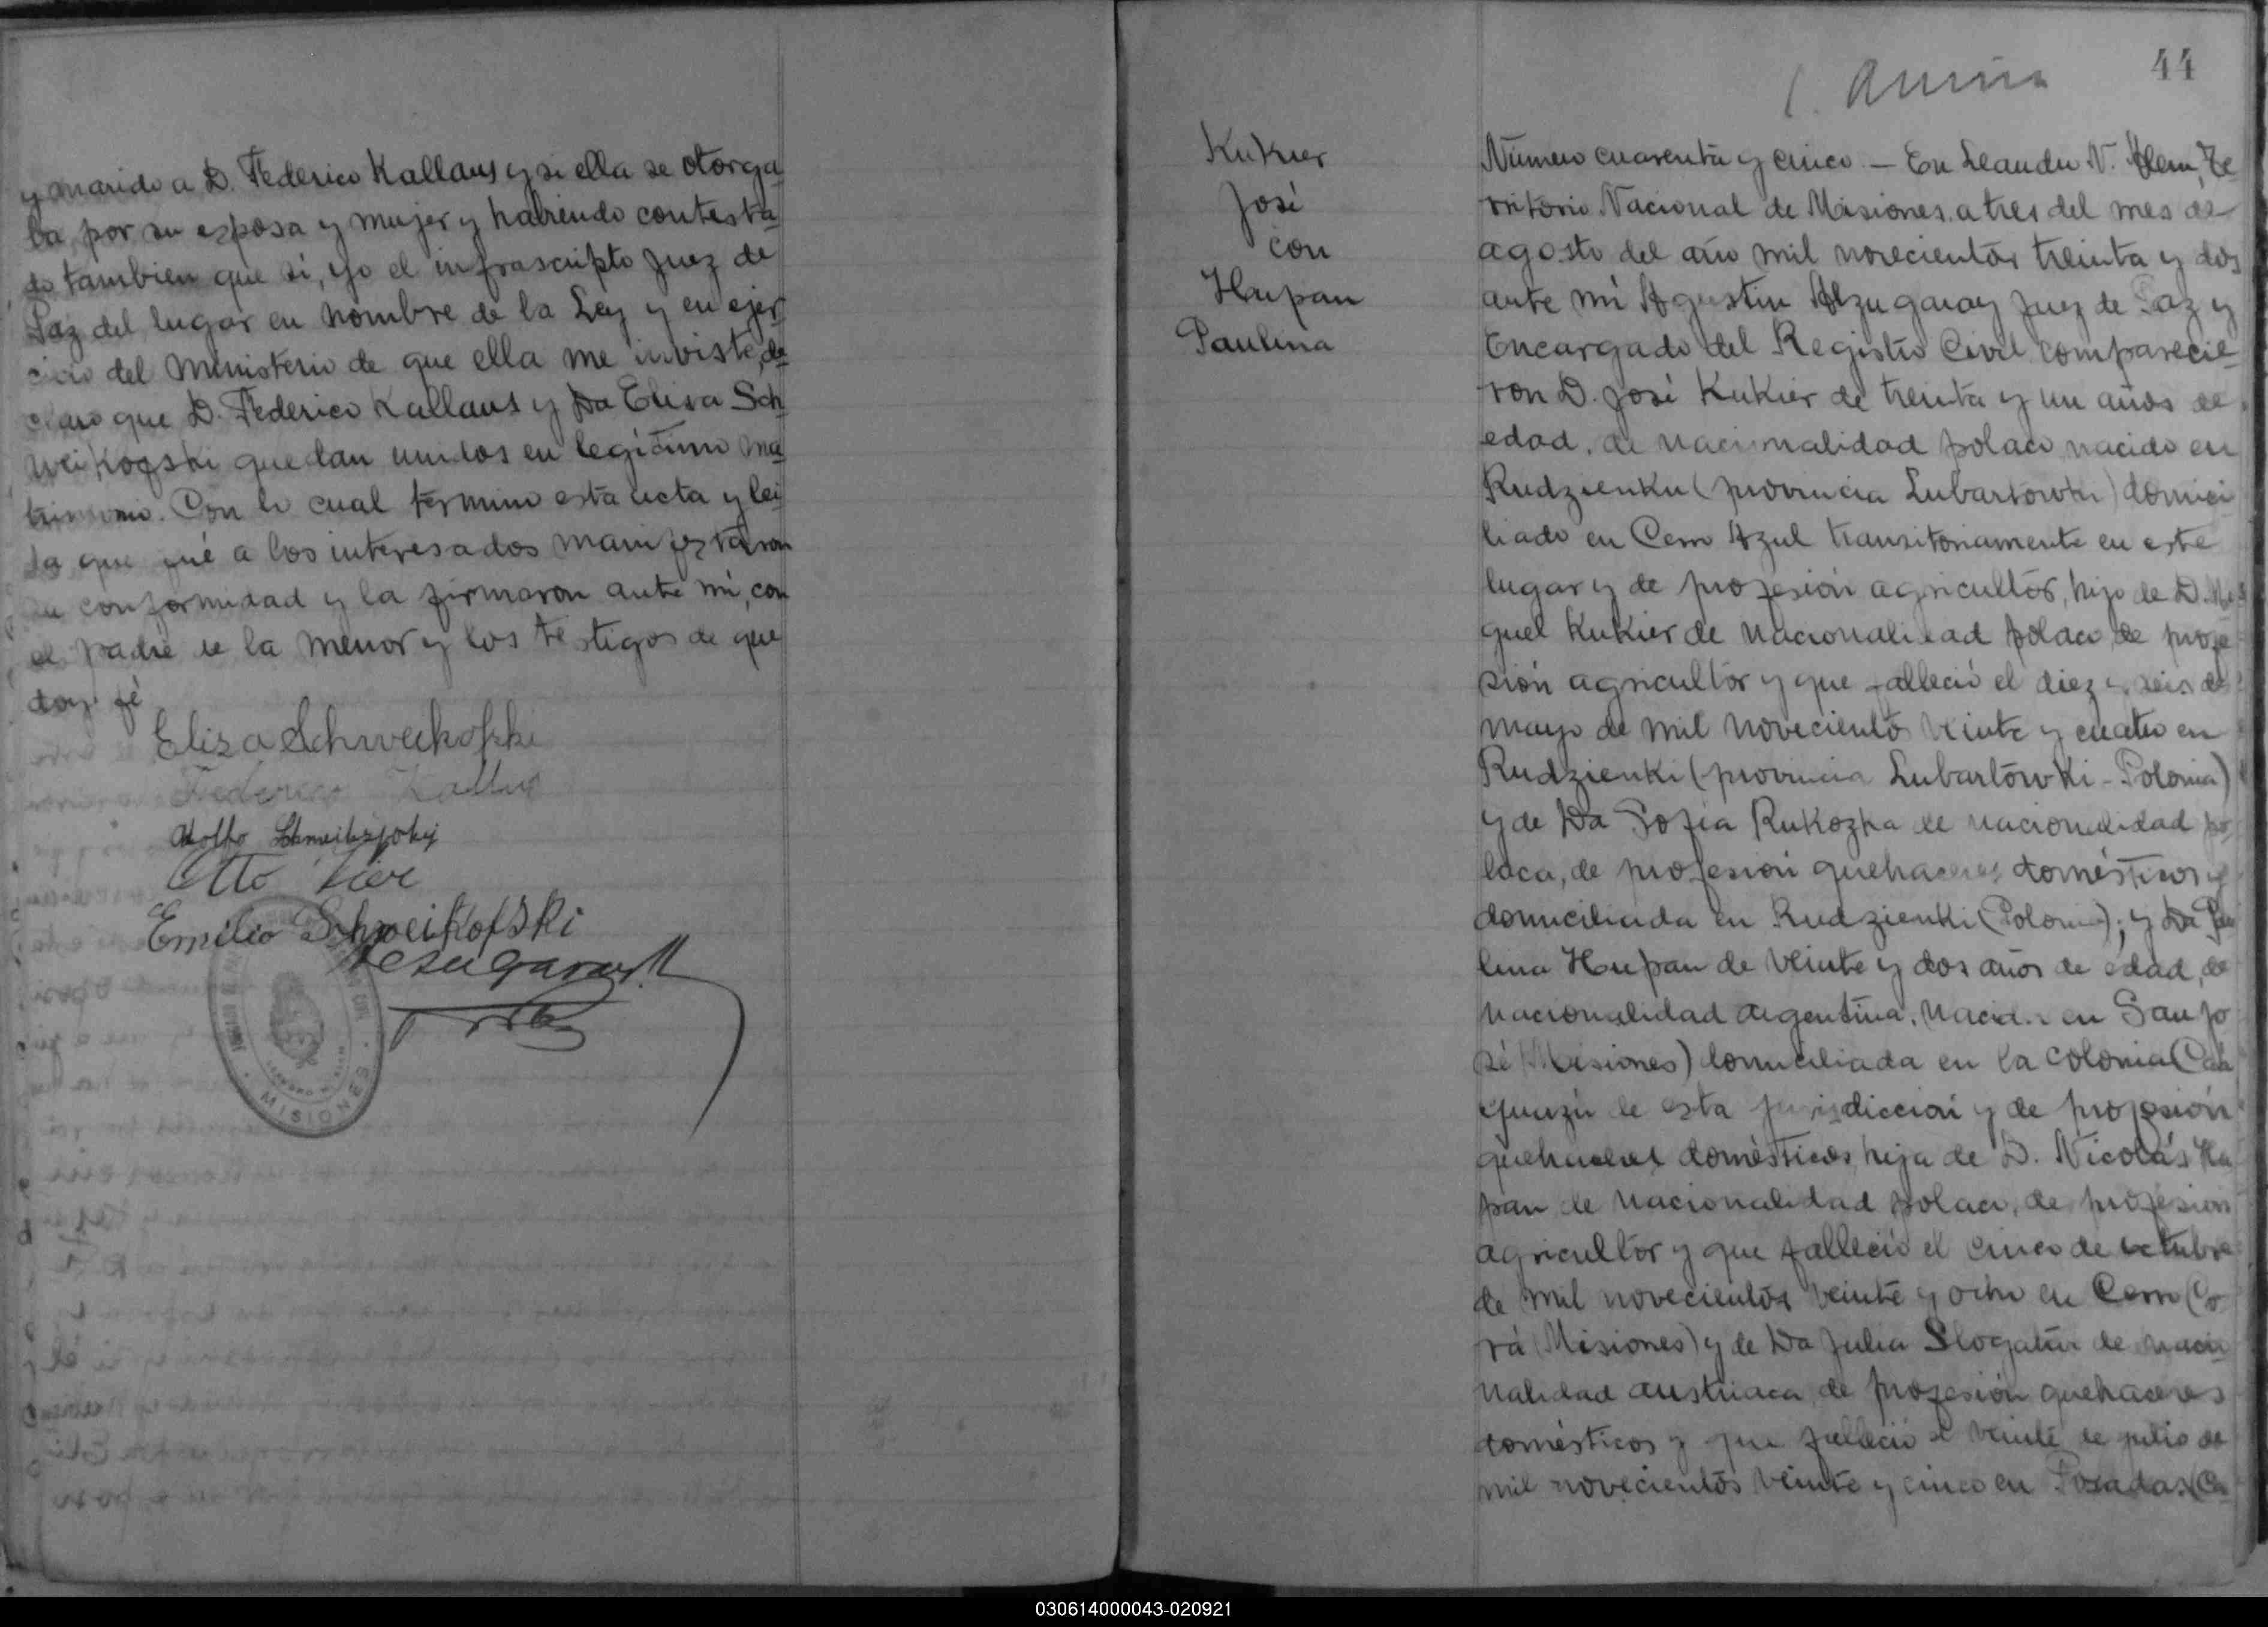 y marido a D. Federico Kallaus y si ella se otorga
ba por su esposa y mujer y habiendo contesta
do tambien que sí, yo el infrascripto Juez de
Paz del lugar en nombre de la Ley y en ejer
cicio del ministerio de que ella me inviste, de
claro que D. Federico Kallaus y Da Elisa Sch
weikofski quedan unidos en legítimo ma
trimonio. Con lo cual termino esta acta y lei
da que fué a los interesados manifestaron
su conformidad y la firmaron ante mí, con
el padre de la menor y los testigos de que
doy fé
Eliza Schweikofski
Federico Kallus
Adolfo
Otto
Emilio Schweikofski
MISIONES
44
Kukier
José
con
Hupan
Paulina
Número cuarenta y cinco. — En Leandro N. Alem, Te
rritorio Nacional de Misiones, a tres del mes de
agosto del año mil novecientos treinta y dos
ante mí Agustin Alzugaray Juez de Paz y
Encargado del Registro Civil, comparecie
ron D. José Kukier de treinta y un años de
edad, de nacionalidad polaco, nacido en
Rudzienku (provincia Lubartowki) domici
liado en Cerro Azul transitoriamente en este
lugar y de profesión agricultor, hijo de D. Mi
guel Kukier de nacionalidad polaco, de profe
sión agricultor y que falleció el diez y seis de
mayo de mil novecientos veinte y cuatro en
Rudzienki (provincia Lubartówki - Polonia)
y de Da Sofia Rukozka de nacionalidad po
laca, de profesion quehaceres domésticos y
domiciliada en Rudzienki (Polonia); y Da Pau
lina Hupan de veinte y dos años de edad, de
nacionalidad argentina, nacida en San Jo
sé (Misiones) domiciliada en la colonia Caá
Guazú de esta jurisdiccion y de profesión
quehaceres domésticos, hija de D. Nicolás Hu
pan de nacionalidad polaco, de profesion
agricultor y que falleció el cinco de octubre
de mil novecientos veinte y ocho en Cerro Co
rá (Misiones) y de Da Julia Slogatür de nacio
nalidad austriaca, de profesión quehaceres
domésticos y que falleció el veinte de julio de
mil novecientos veinte y cinco en Posadas (Ca
030614000043-020921